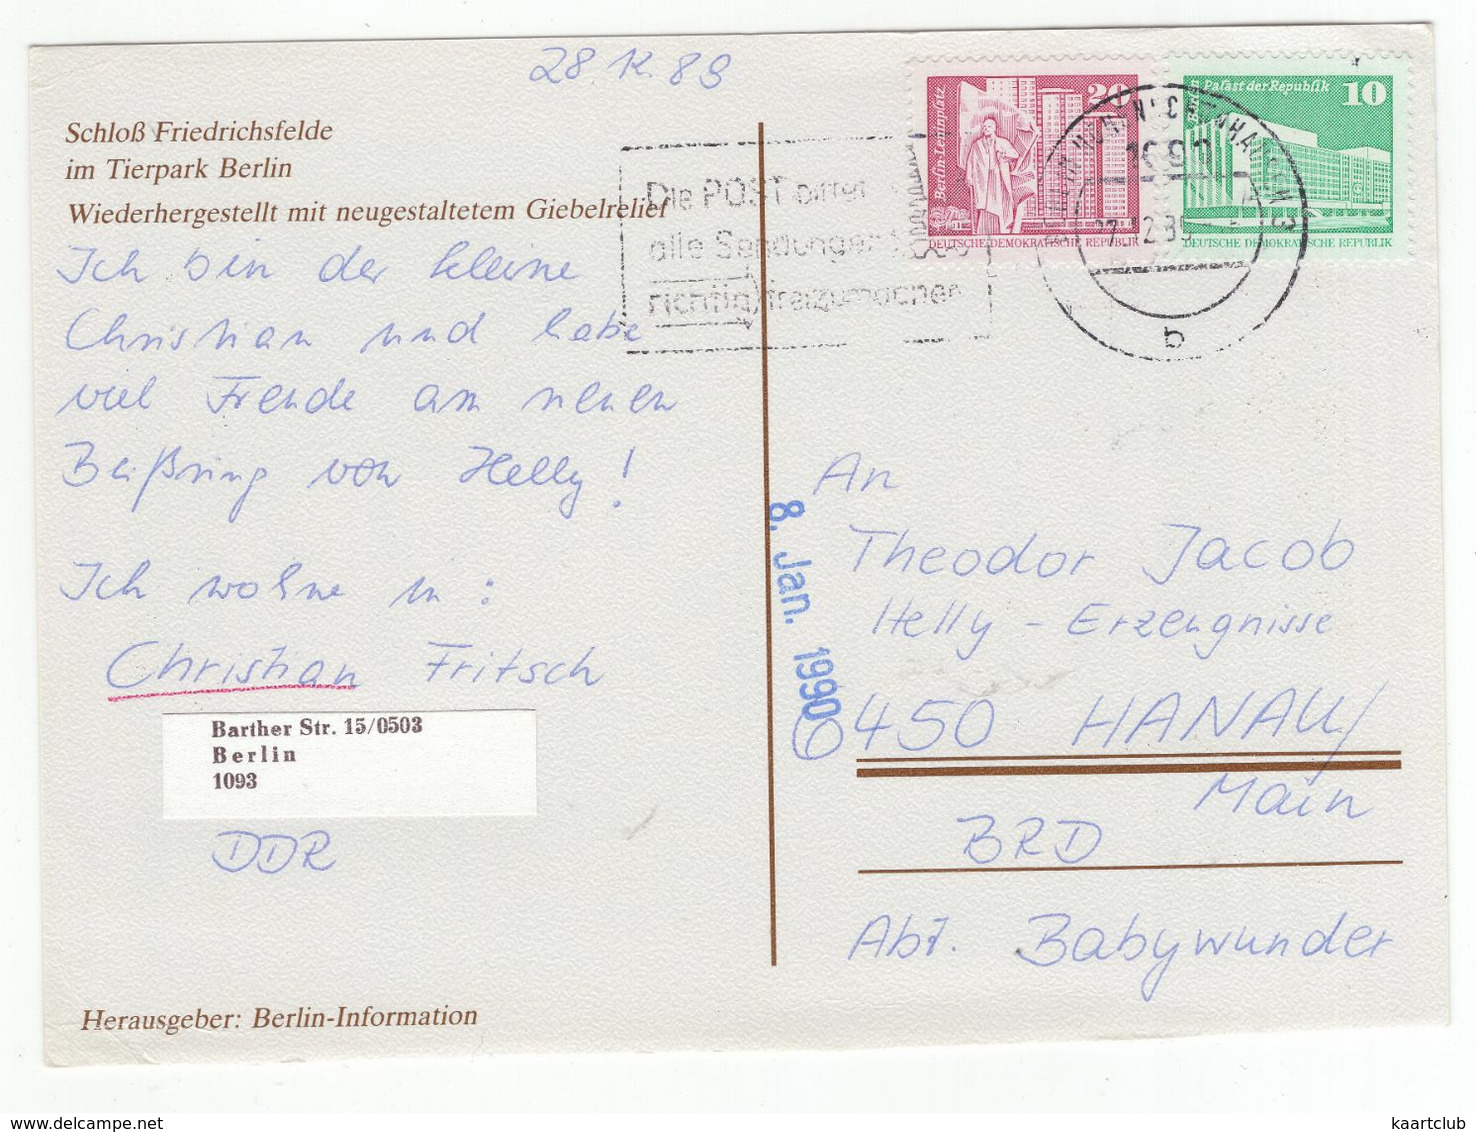 28.12.89
Schloß Friedrichsfelde
im Tierpark Berlin
Wiederhergestellt mit neugestaltetem Giebelrelief
Ich bin der kleine
Christian und habe
viel Freude am neuen
Beißring von Helly!
Ich wohne in:
Christian Fritsch
Barther Str. 15/0503
Berlin
1093
DDR
Herausgeber: Berlin-Information
Die POST bittet
alle Sendungen
richtig freizumachen
Berlin-Leninplatz
20
DEUTSCHE DEMOKRATISCHE REPUBLIK
Berlin
Palast der Republik 10
DEUTSCHE DEMOKRATISCHE REPUBLIK
b
8. Jan. 1990
An
Theodor Jacob
Helly - Erzeugnisse
6450 HANAU/
Main
BRD
Abt. Babywunder
kaartclub